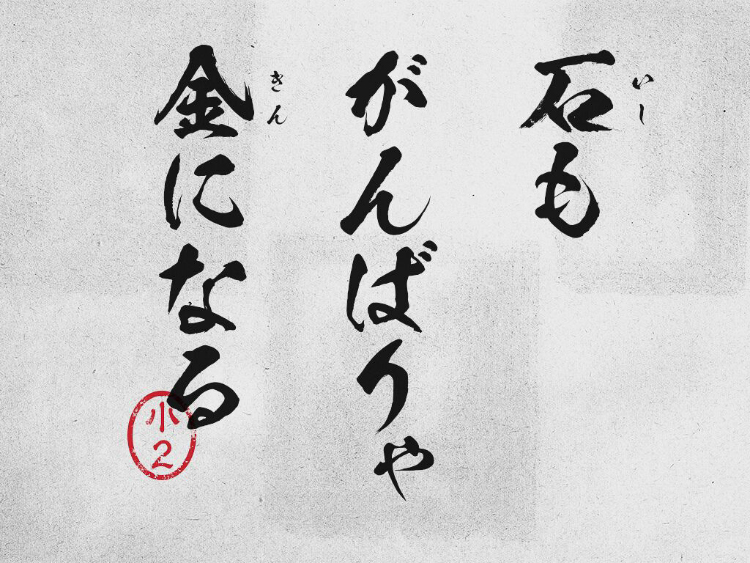 石も
いし
がんばりゃ
金になる
きん
小2